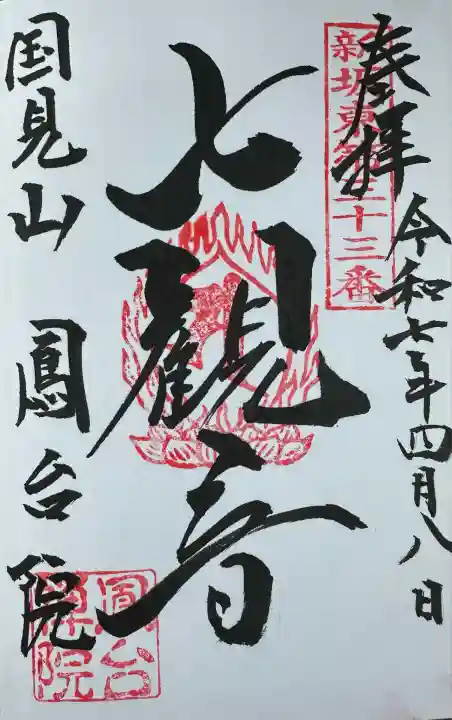 奉拝
令和七年四月八日
新坂東第三十三番
七観音
国見山 鳳台院
鳳台院